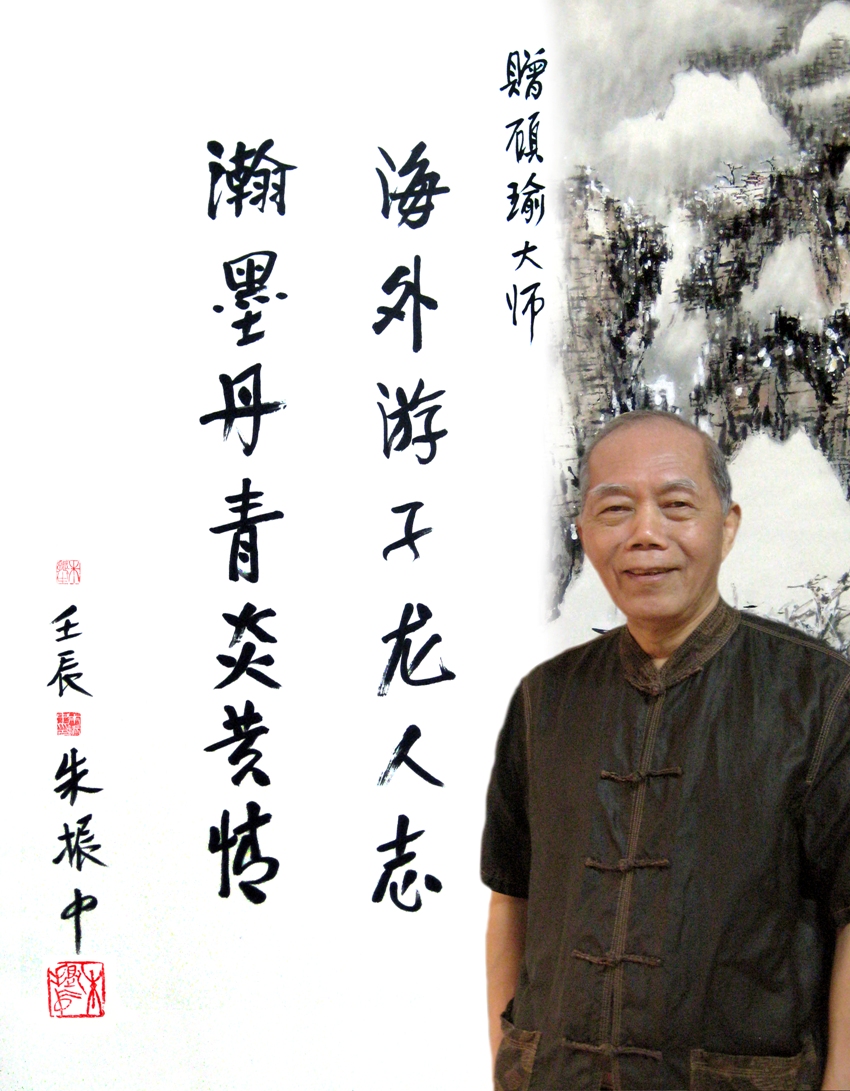 贈碩瑜大师
海外游子龙人志
瀚墨丹青炎黄情
壬辰
朱振中